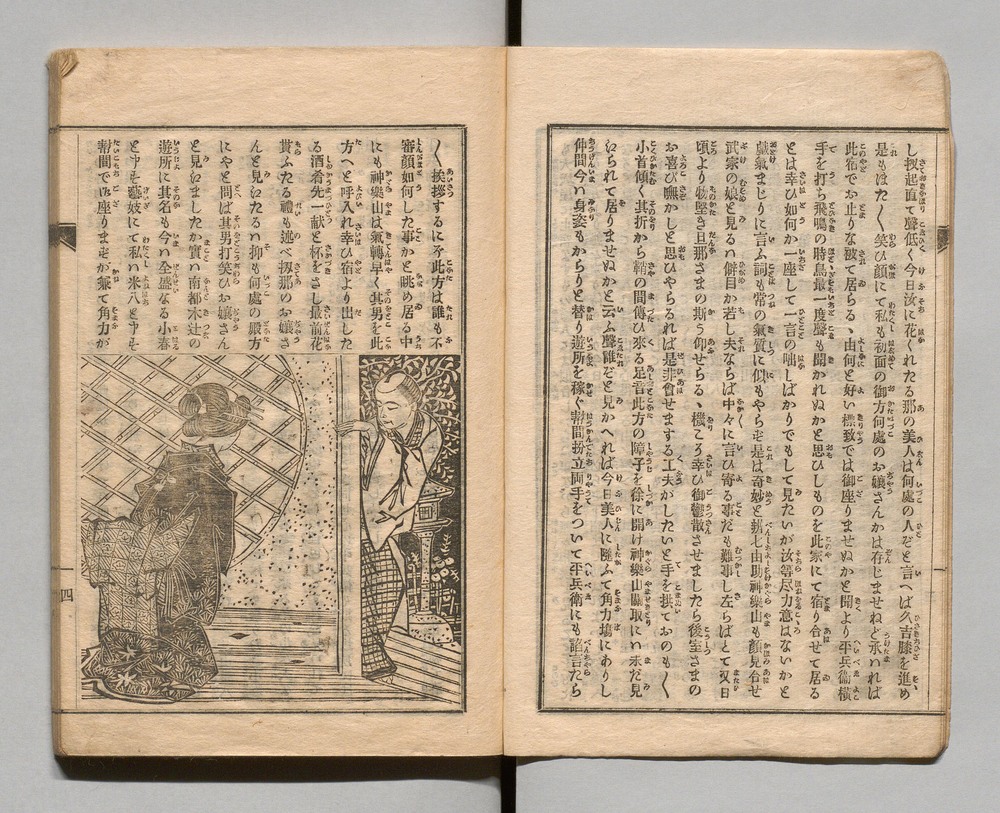 し扨起直て聲低く今日汝に花くれたる那の美人は何處の人ぞと言へば久吉膝を進め
是もはた〳〵笑ひ顔にて私も初面の御方何處のお嬢さんかは存じませねど承れば
此宿でお止りな被て居らる、由何と好い標致では御座りませぬかと聞より平兵衞横
手を打ち飛鳴の時鳥最一度聲も聞かれぬかと思ひしものを此家にて宿り合せて居る
とは幸ひ如何か一座して一言の咄しばかりでもして見たいが汝等尽力意はないかと
戯氣まじりに言ふ詞も常の氣質に似もやらず是は奇妙と辨七由助神樂山も顔見合せ
武家の娘と見るは僻目か若し夫ならば中々に言ひ寄る事だも難事し左らばとて又日
頃より物堅き旦那さまの斯う仰せらる、機こう幸ひ御鬱散させましたら後室さまの
お喜び嘸かしと思ひやらるれば是非會せまする工夫がしたいと手を拱ておのも〳〵
小首傾く其折から鞘の間傳ひ來る足音此方の障子を徐に開け神樂山關取にハ未だ見
知られて居りませぬかと云ふ聲誰だと見かへれば今日美人に隨ふて角力場にありし
仲間今ハ身姿もからりと替り遊所を稼ぐ幇間扮立両手をついて平兵衛にも諂言たら
〳〵挨拶するにぞ此方は誰も不
審顔如何した事かと眺め居る中
にも神樂山は氣轉早く其男を此
方へと呼入れ幸ひ宿より出した
る酒肴先一献と杯をさし最前花
貰ふたる禮も述べ扨那のお嬢さ
んと見ゑたるハ抑も何處の嚴方
にやと問ば其男打笑ひお嬢さん
と見ゑましたか實ハ南都木辻の
遊所に其名も今ハ全盛なる小春
と申す藝妓にて私ハ米八と申す
幇間で御座りますが兼て角力が
四